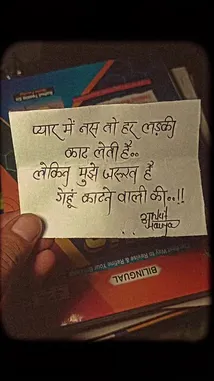 प्यार में नस तो हर लड़की
काट लेती है..
लेकिन मुझे जरूरत है
गेहूं काटने वाली की..!!
BILINGUAL